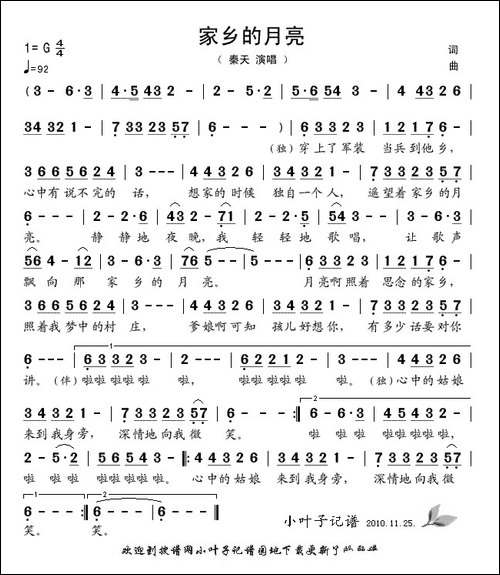 家乡的月亮
1=G 4/4
♩=92
（秦天 演唱）
词
曲
(3 - 6·3 | 4·5 4 3 2 | 2 - 5·2 | 5·6 5 4 3 - | 4 4 3 2 6 |
3 4 4 3 2 1 - | 7 3 3 2 3 5·5 | 6 - - - ) | 6 3 3 2 3 | 1 2 1 7 6 - |
(独)穿上了军装 当兵到他乡，
3 6 6 5 6 2 4 | 3 - - - | 4 4 3 2 6 | 3 4 4 3 2 1 - | 7 3 3 2 3 5 7 |
心中有说不完的 话， 想家的时候 独自一个人， 遥望着家乡的月
6 - - - | 3 - 6·3 | 2 - 2·6 | 4 3 2 - 7 1 | 2 - 5·2 | 5 4 3 - - | 3 - 6·3 |
亮。 静 静地 夜晚，我 轻 轻地 歌唱， 让 歌声
5 6 4 - 1 2 | 3 - 6·3 | 7 6 5 - - | 5 - - - | 6 3 3 2 3 | 1 2 1 7 6 - |
飘向 那 家 乡的 月 亮。 月亮啊照着 思念的家乡，
3 6 6 5 6 2 4 | 3 - - - | 4 4 3 2 6 | 3 4 4 3 2 1 - | 7 3 3 2 3 5 7 |
照着我梦中的村 庄， 爹娘啊可知 孩儿好想你， 有多少话要对你
6 - - - | 6 3 3 2 3 | 2 - - - | 6 2 2 1 2 | 3 - - - | 4 4 3 2 6 |
讲。(伴)啦啦啦啦啦 啦， 啦啦啦啦啦 啦。(独)心中的姑娘
3 4 4 3 2 1 - | 7 3 3 2 3 5 7 | 6 - - - :| 6 - 6·3 | 4 5 4 3 2 - |
来到我身旁， 深情地向我微 笑。 啦 啦啦 啦啦啦啦，
2 - 5·2 | 5 6 5 4 3 - :| 4 4 3 2 6 | 3 4 4 3 2 1 - | 7 3 3 2 3 5 7 |
啦 啦啦 啦啦啦啦。 心中的姑娘 来到我身旁， 深情地向我微
6 - - - :| 6 - - - | 6 - - - ||
笑。 笑。
小叶子记谱 2010.11.25.